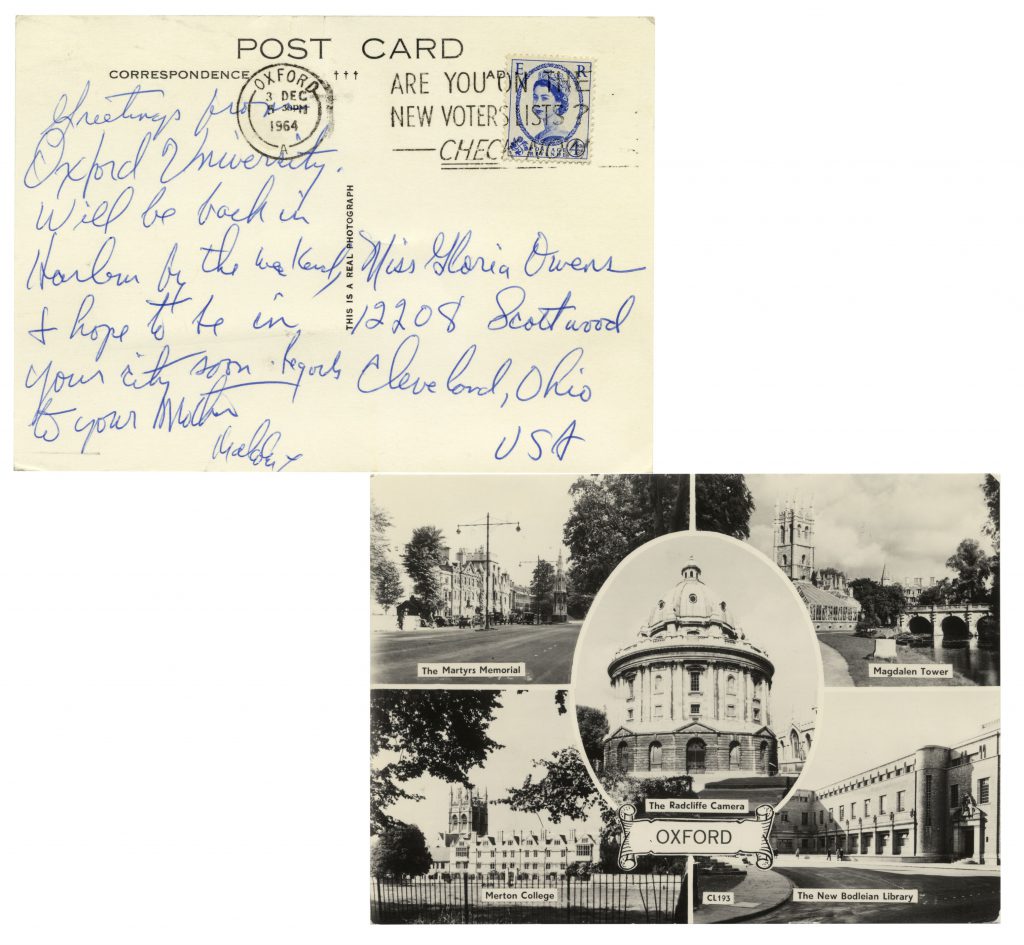 POST CARD
CORRESPONDENCE
†††
OXFORD
3 DEC
PM
1964
A
ARE YOU ON THE
NEW VOTERS LISTS?
— CHECK NOW
E R
4D
THIS IS A REAL PHOTOGRAPH
Greetings from
Oxford University.
Will be back in
Harlem by the weekend
& hope to be in
your city soon. Regards
to your Mother
Malcolm X
Miss Gloria Owens
12208 Scottwood
Cleveland, Ohio
USA
The Martyrs Memorial
Magdalen Tower
The Radcliffe Camera
OXFORD
Merton College
CL193
The New Bodleian Library